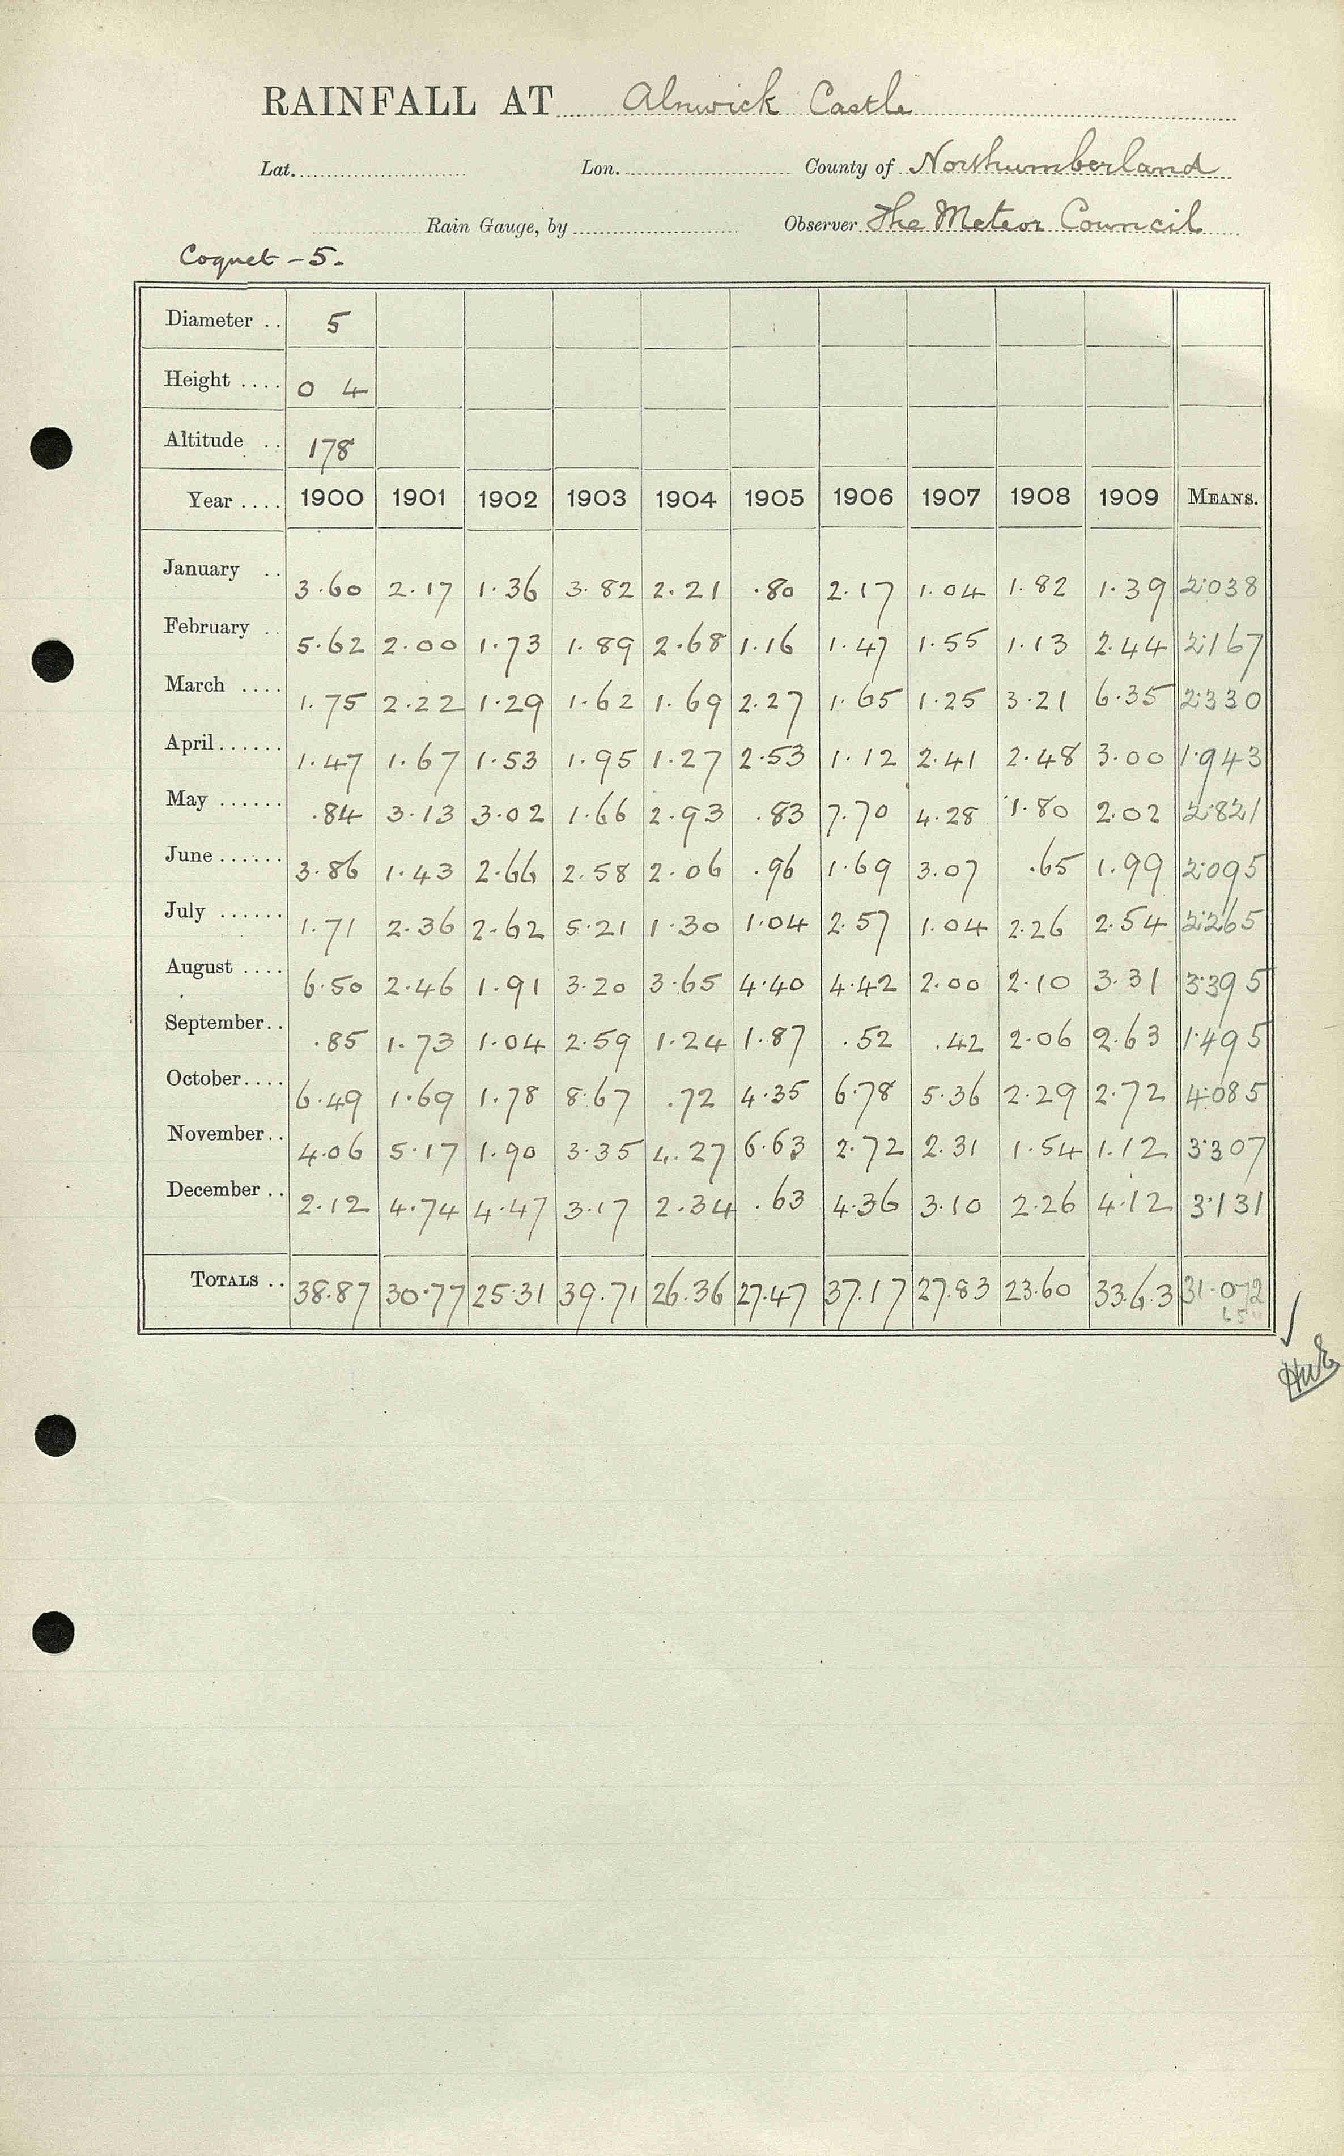 RAINFALL AT Alnwick Castle
Lat. Lon. County of Northumberland
Rain Gauge, by Observer The Meteor Council
Coquet - 5.
Diameter .. 5
Height .... 0 4
Altitude .. 178
Year .... 1900 1901 1902 1903 1904 1905 1906 1907 1908 1909 MEANS.
January .. 3.60 2.17 1.36 3.82 2.21 .80 2.17 1.04 1.82 1.39 2.038
February .. 5.62 2.00 1.73 1.89 2.68 1.16 1.47 1.55 1.13 2.44 2.167
March .... 1.75 2.22 1.29 1.62 1.69 2.27 1.65 1.25 3.21 6.35 2.330
April...... 1.47 1.67 1.53 1.95 1.27 2.53 1.12 2.41 2.48 3.00 1.943
May ...... .84 3.13 3.02 1.66 2.93 .83 7.70 4.28 1.80 2.02 2.821
June ...... 3.86 1.43 2.66 2.58 2.06 .96 1.69 3.07 .65 1.99 2.095
July ...... 1.71 2.36 2.62 5.21 1.30 1.04 2.57 1.04 2.26 2.54 2.265
August .... 6.50 2.46 1.91 3.20 3.65 4.40 4.42 2.00 2.10 3.31 3.395
September.. .85 1.73 1.04 2.59 1.24 1.87 .52 .42 2.06 2.63 1.495
October.... 6.49 1.69 1.78 8.67 .72 4.35 6.78 5.36 2.29 2.72 4.085
November.. 4.06 5.17 1.90 3.35 4.27 6.63 2.72 2.31 1.54 1.12 3.307
December .. 2.12 4.74 4.47 3.17 2.34 .63 4.36 3.10 2.26 4.12 3.131
TOTALS .. 38.87 30.77 25.31 39.71 26.36 27.47 37.17 27.83 23.60 33.63 31.072